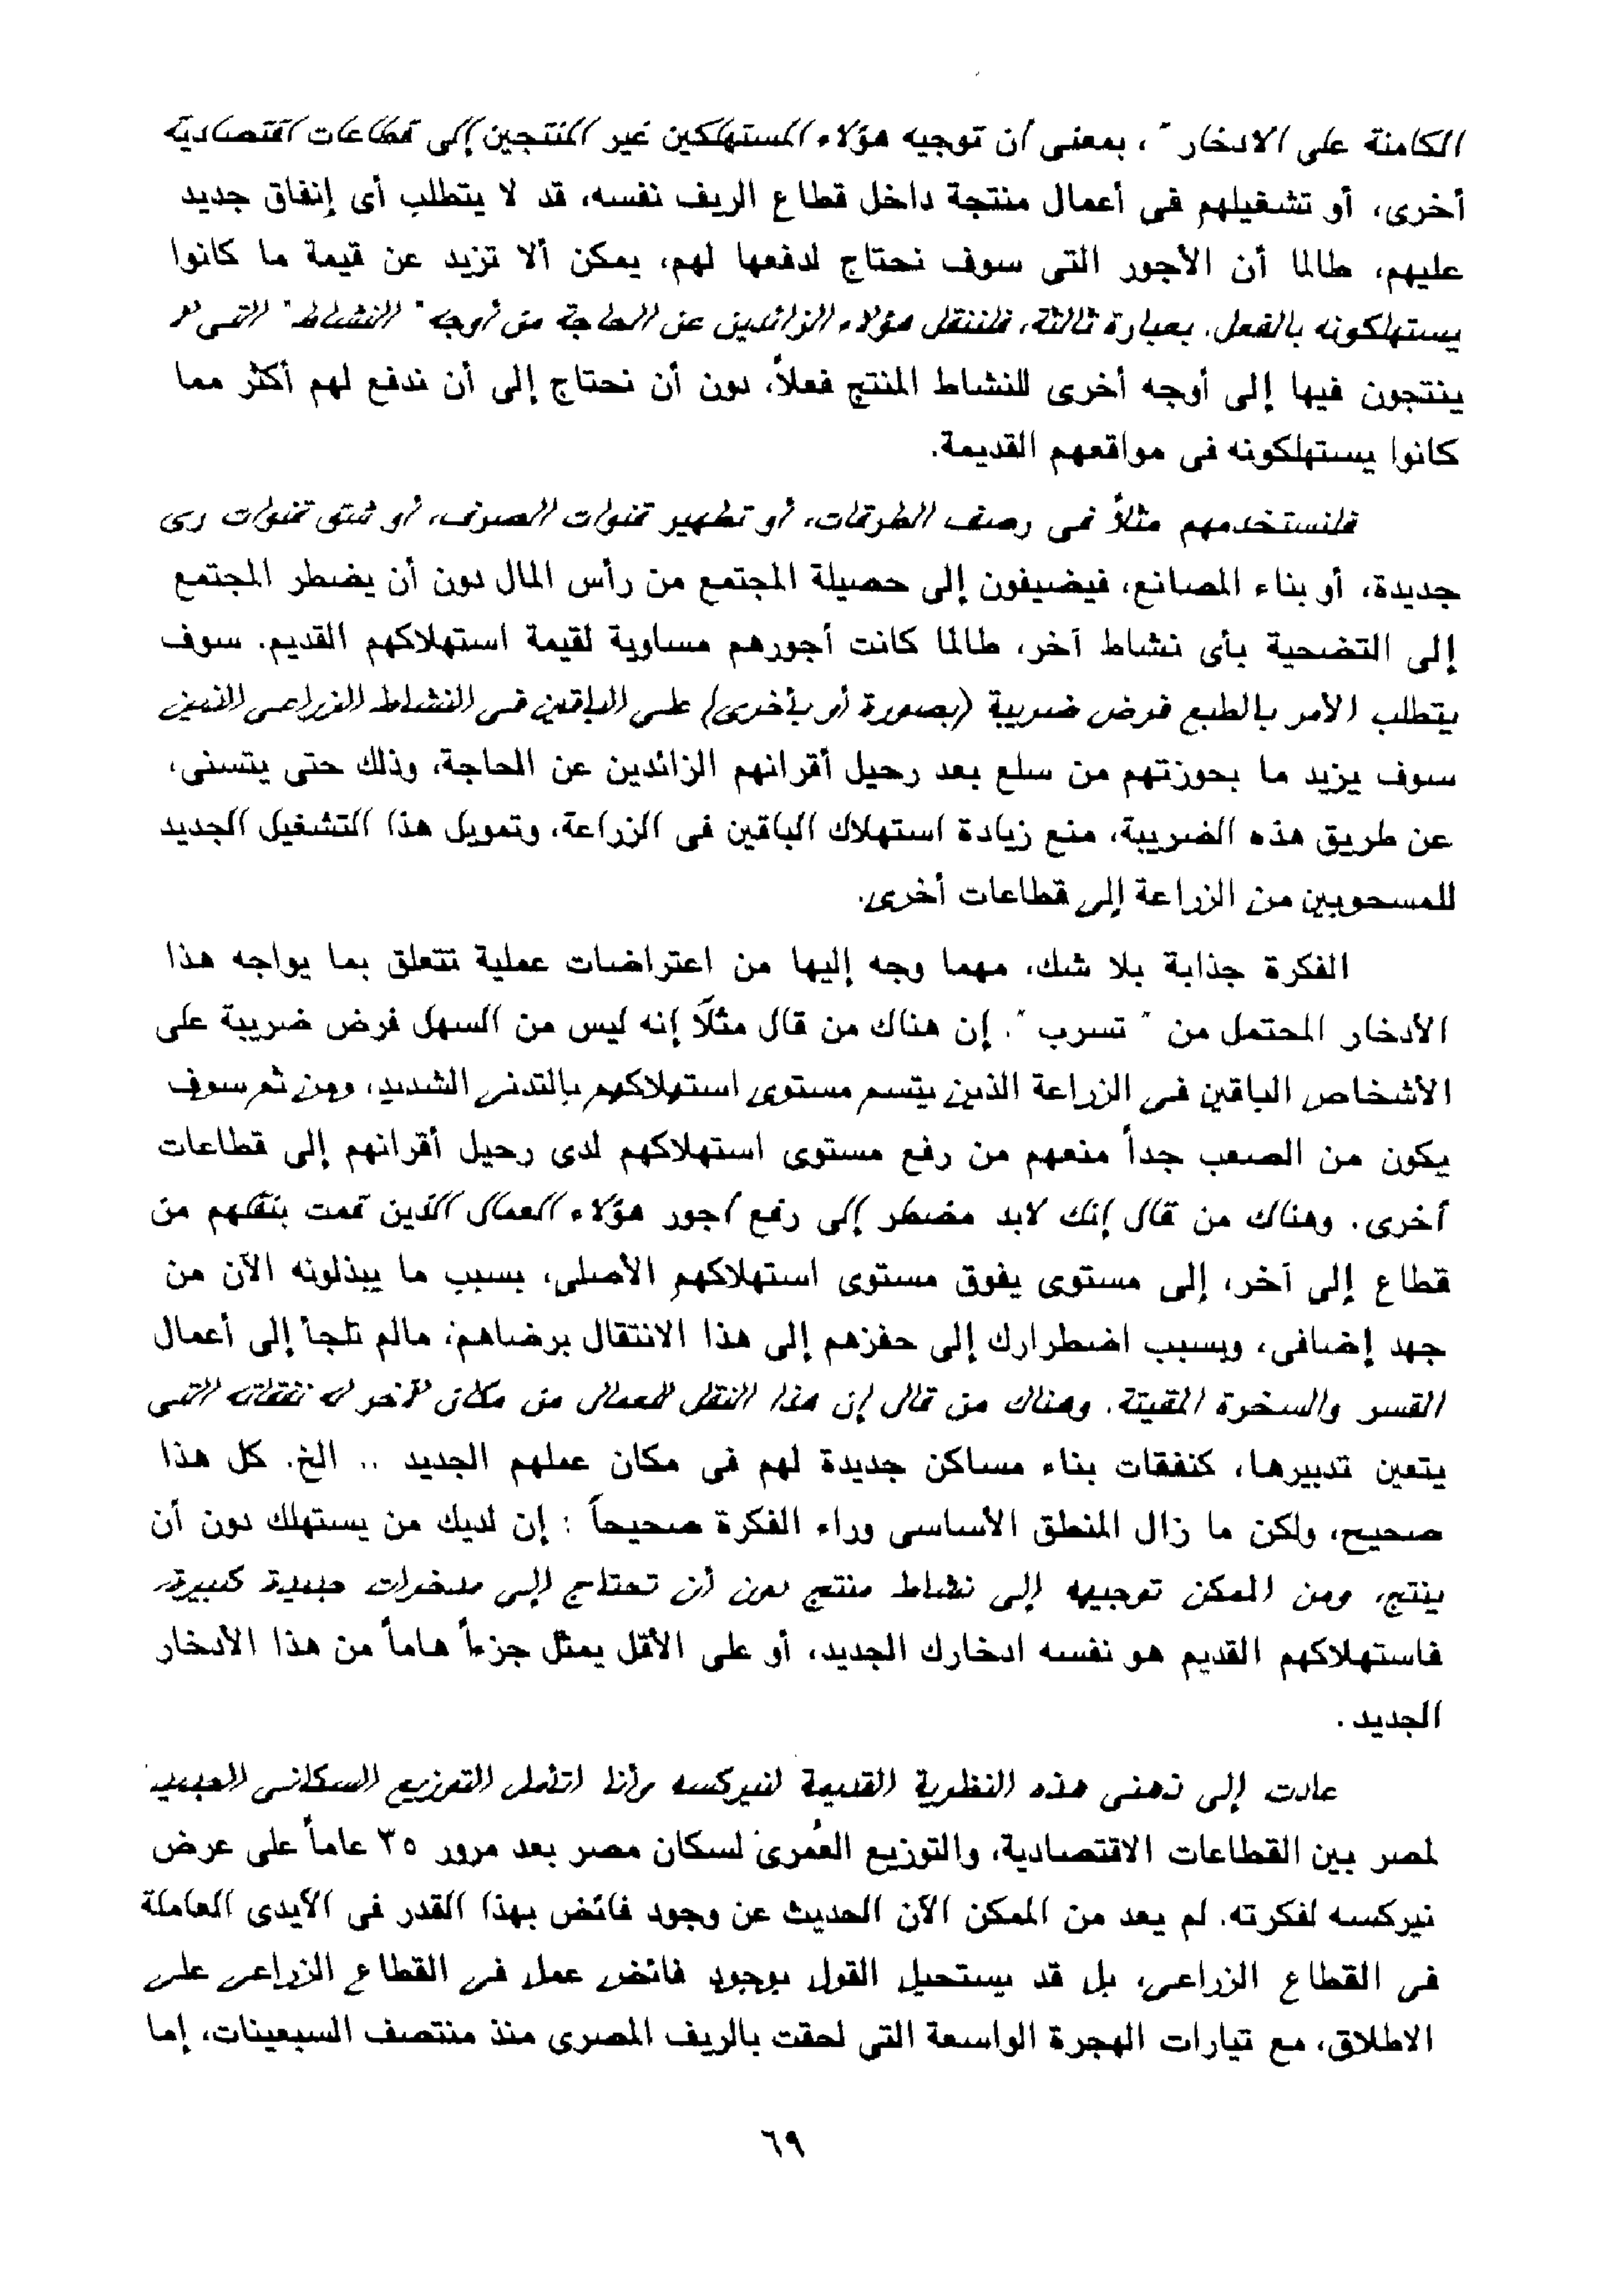 الكامنة على الادخار "، بمعنى أن توجيه هؤلاء المستهلكين غير المنتجين إلى قطاعات اقتصادية
أخرى، أو تشغيلهم فى أعمال منتجة داخل قطاع الريف نفسه، قد لا يتطلب أى إنفاق جديد
عليهم، طالما أن الأجور التى سوف نحتاج لدفعها لهم، يمكن ألا تزيد عن قيمة ما كانوا
يستهلكونه بالفعل. بعبارة ثالثة، فلننقل هؤلاء الزائدين عن الحاجة من أوجه " النشاط " التى لا
ينتجون فيها إلى أوجه أخرى للنشاط المنتج فعلاً، دون أن نحتاج إلى أن ندفع لهم أكثر مما
كانوا يستهلكونه فى مواقعهم القديمة.
فلنستخدمهم مثلاً فى رصف الطرقات، أو تطهير قنوات الصرف، أو شق قنوات رى
جديدة، أو بناء المصانع، فيضيفون إلى حصيلة المجتمع من رأس المال دون أن يضطر المجتمع
إلى التضحية بأى نشاط آخر، طالما كانت أجورهم مساوية لقيمة استهلاكهم القديم. سوف
يتطلب الأمر بالطبع فرض ضريبة (بصورة أو بأخرى) على الباقين فى النشاط الزراعى الذين
سوف يزيد ما بحوزتهم من سلع بعد رحيل أقرانهم الزائدين عن الحاجة، وذلك حتى يتسنى،
عن طريق هذه الضريبة، منع زيادة استهلاك الباقين فى الزراعة، وتمويل هذا التشغيل الجديد
للمسحوبين من الزراعة إلى قطاعات أخرى.
الفكرة جذابة بلا شك، مهما وجه إليها من اعتراضات عملية تتعلق بما يواجه هذا
الأدخار المحتمل من " تسرب ". إن هناك من قال مثلاً إنه ليس من السهل فرض ضريبة على
الأشخاص الباقين فى الزراعة الذين يتسم مستوى استهلاكهم بالتدنى الشديد، ومن ثم سوف
يكون من الصعب جداً منعهم من رفع مستوى استهلاكهم لدى رحيل أقرانهم إلى قطاعات
أخرى. وهناك من قال إنك لابد مضطر إلى رفع أجور هؤلاء العمال الذين قمت بنقلهم من
قطاع إلى آخر، إلى مستوى يفوق مستوى استهلاكهم الأصلى، بسبب ما يبذلونه الآن من
جهد إضافى، وبسبب اضطرارك إلى حفزهم إلى هذا الانتقال برضاهم، مالم تلجأ إلى أعمال
القسر والسخرة المقيتة. وهناك من قال إن هذا النقل للعمال من مكان لآخر له نفقاته التى
يتعين تدبيرها، كنفقات بناء مساكن جديدة لهم فى مكان عملهم الجديد .. الخ. كل هذا
صحيح، ولكن ما زال المنطق الأساسى وراء الفكرة صحيحاً : إن لديك من يستهلك دون أن
ينتج، ومن الممكن توجيهه إلى نشاط منتج دون أن تحتاج إلى مدخرات جديدة كبيرة،
فاستهلاكهم القديم هو نفسه ادخارك الجديد، أو على الأقل يمثل جزءاً هاماً من هذا الأدخار
الجديد .
عادت إلى ذهنى هذه النظرية القديمة لنيركسه وأنا اتأمل التوزيع السكانى الجديد
لمصر بين القطاعات الاقتصادية، والتوزيع العُمرى لسكان مصر بعد مرور ٣٥ عاماً على عرض
نيركسه لفكرته. لم يعد من الممكن الآن الحديث عن وجود فائض بهذا القدر فى الأيدى العاملة
فى القطاع الزراعى، بل قد يستحيل القول بوجود فائض عمل فى القطاع الزراعى على
الاطلاق، مع تيارات الهجرة الواسعة التى لحقت بالريف المصرى منذ منتصف السبعينات، إما
٦٩